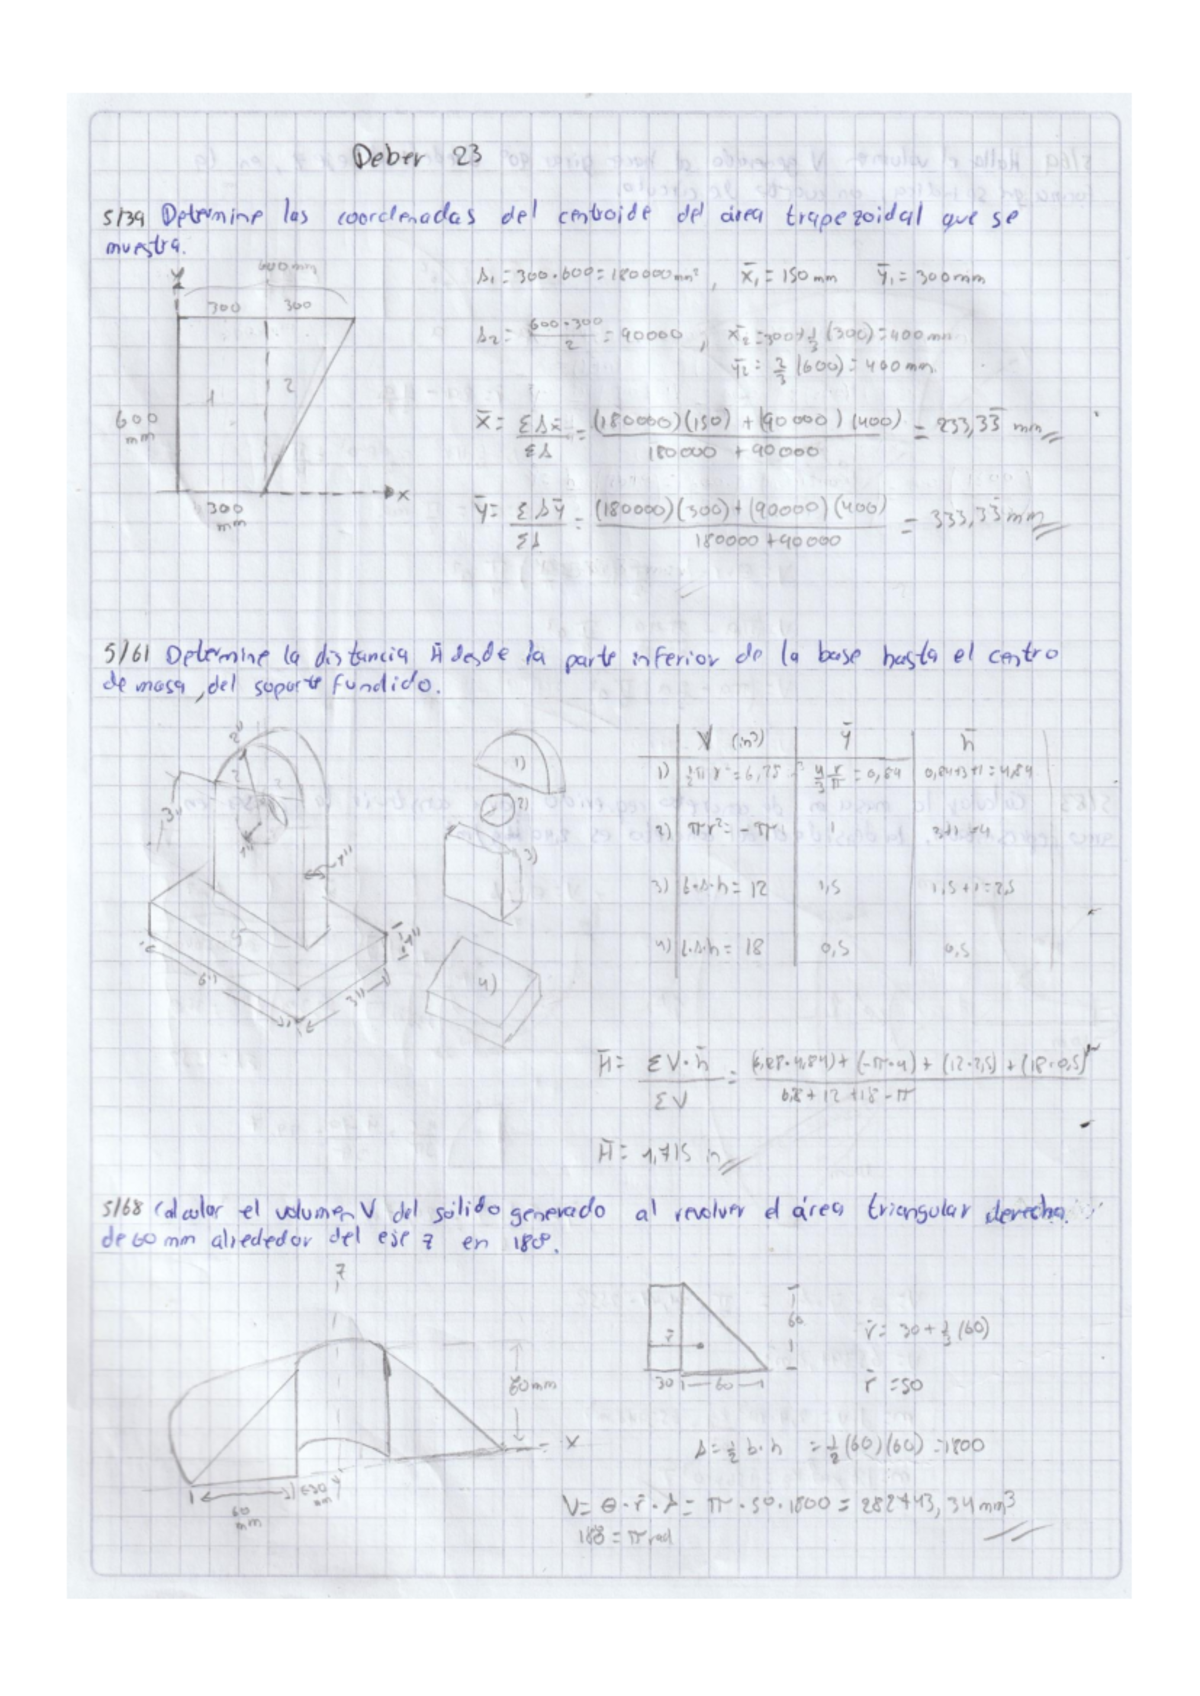 Deber 23
5/39 Determine las coordenadas del centroide del área trapezoidal que se
muestra.
y
600mm
300 300
1 2
600
mm
300
mm
x
A₁ = 300·600 = 180000 mm² , x̄₁ = 150 mm ȳ₁ = 300mm
A₂ = 600·300/2 = 90000 , x̄₂ = 300+1/3 (300) = 400 mm
ȳ₂ = 2/3 (600) = 400 mm.
x̄ = ΣAx̄/ΣA = (180000)(150) + (90000)(400)/180000 + 90000 = 233,33 mm
ȳ = ΣAȳ/ΣA = (180000)(300) + (90000)(400)/180000 + 90000 = 333,33 mm
5/61 Determine la distancia H̄ desde la parte inferior de la base hasta el centro
de masa, del soporte fundido.
2"
3"
1"
6"
3"
1)
2)
3)
4)
V (in³) ȳ h̄
1) 1/2 π r² = 6,28 4/3 r/π = 0,84 0,84+3+1 = 4,84
2) πr² = -π 1 3+1 = 4
3) b·A·h = 12 1,5 1,5+1 = 2,5
4) b·A·h = 18 0,5 0,5
H̄ = ΣV·h̄/ΣV = (6,28·4,84) + (-π·4) + (12·2,5) + (18·0,5)/6,28 + 12 + 18 - π
H̄ = 1,715 in
5/68 Calcular el volumen V del sólido generado al revolver el área triangular derecha.
de 60 mm alrededor del eje z en 180°.
z
60mm
x
60
mm
30
mm
y
r̄
60
30 60
r̄ = 30 + 1/3 (60)
r̄ = 50
A = 1/2 b·h = 1/2 (60)(60) = 1800
V = θ·r̄·A = π·50·1800 = 282743,34 mm³
180 = π rad